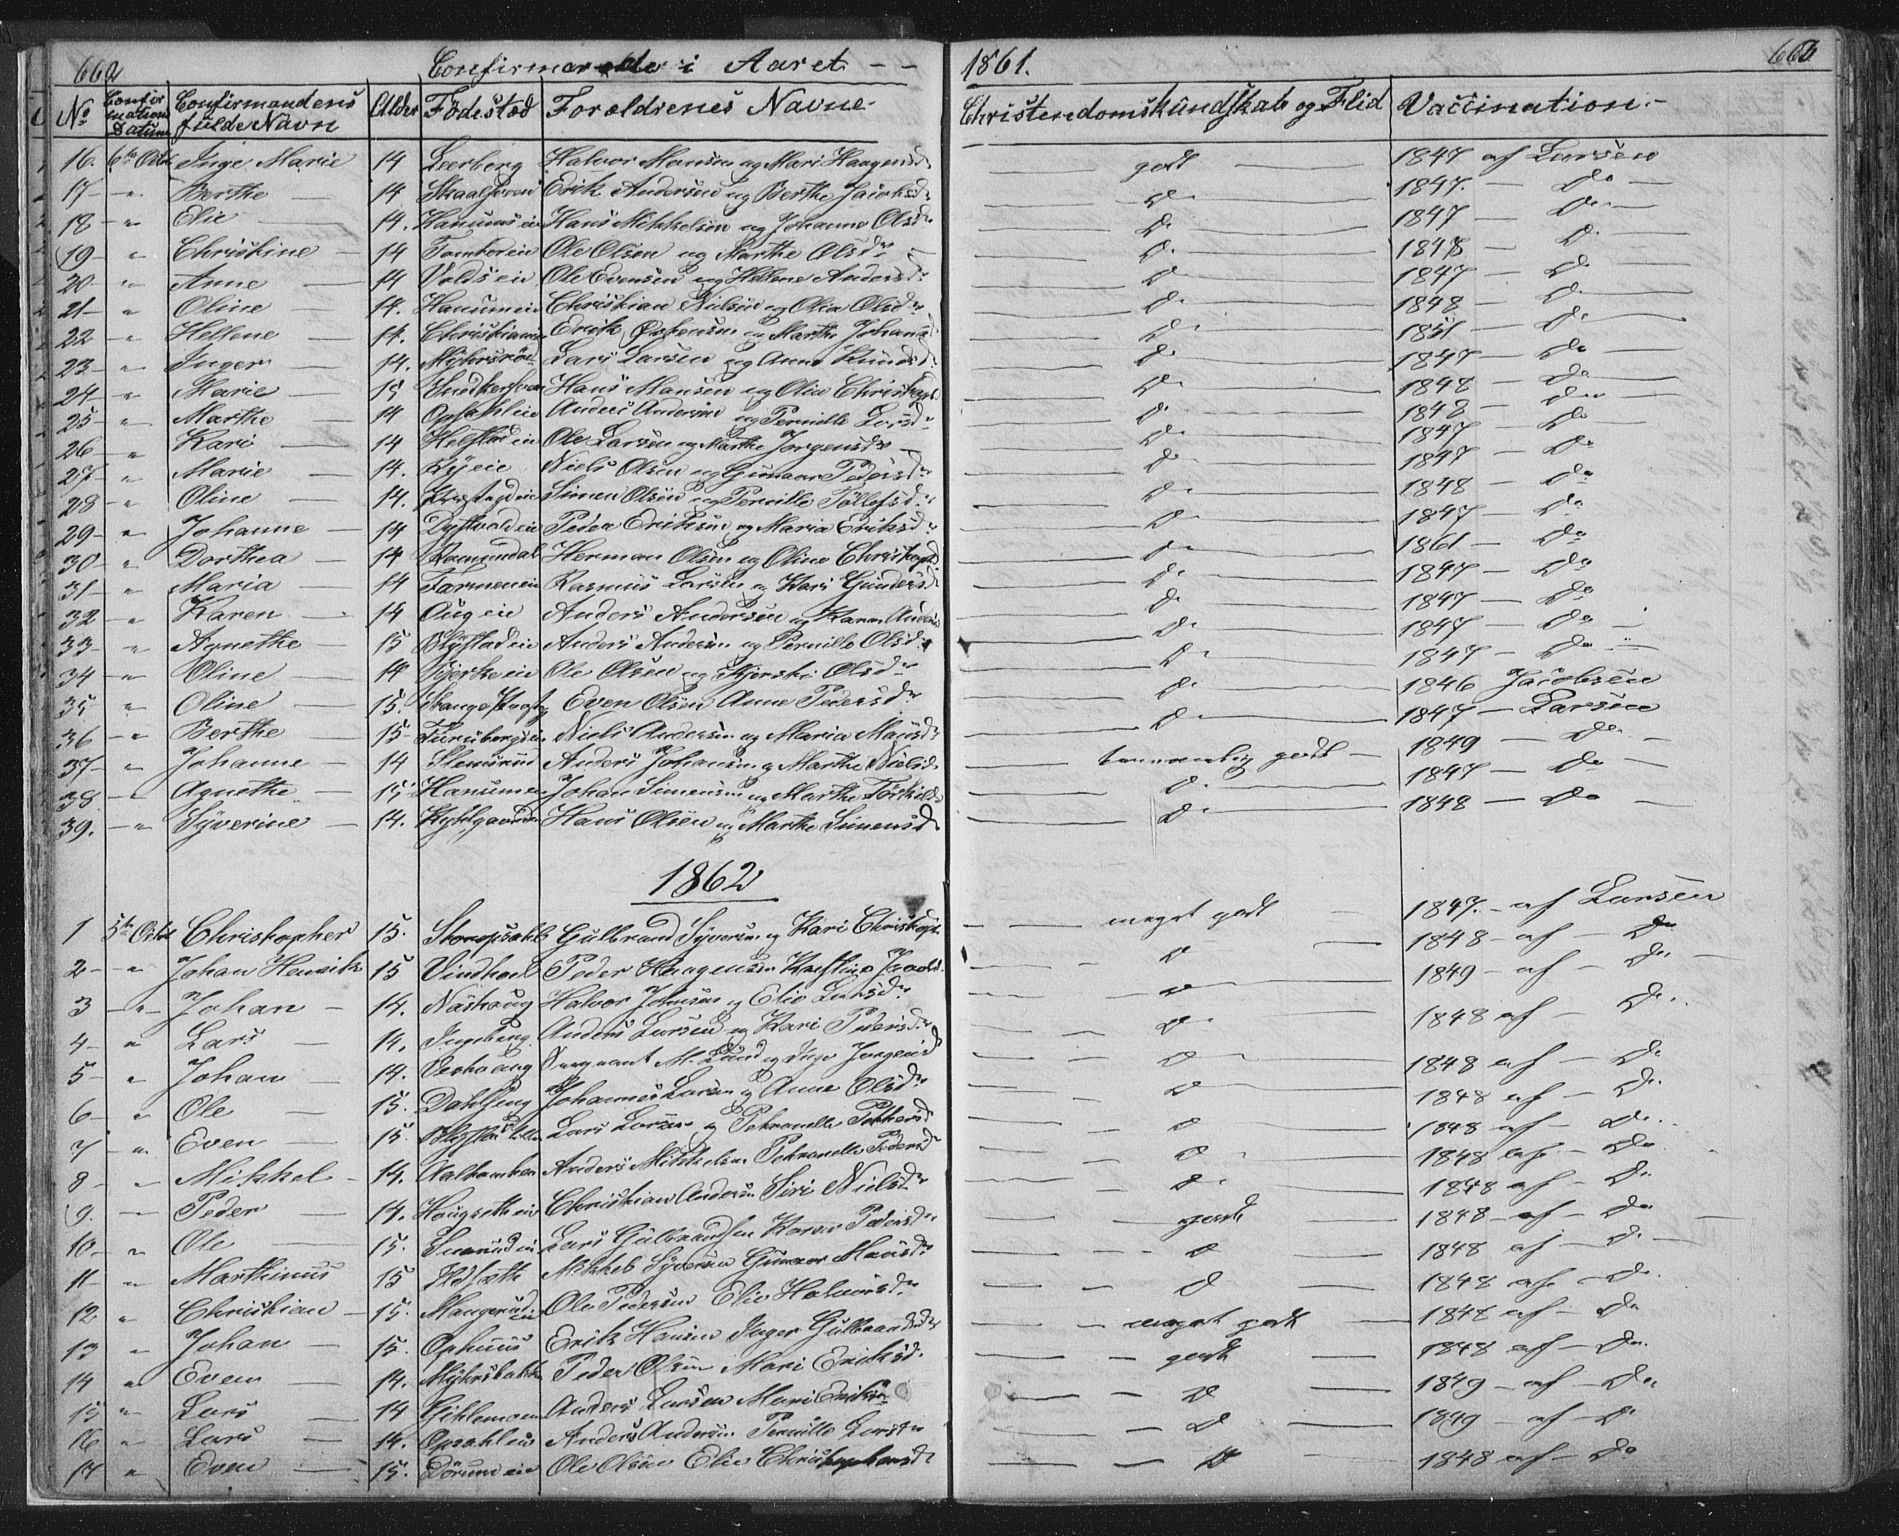 662 Confirmerede i Aaret - - 1861. 663
No Confirmations Datum Confirmandens fulde Navn Alder Födestad Foreldrenes Navne Christendomskundskab og Flid Vaccination
16. 6te Octb Inge Marie 14 Leerberg Halvor Hansen og Mari Haagensdr godt 1847 af Larsen
17 - " Berthe 14 Erik Andersen og Berthe Jacobsdr Do 1847. - Do
18 - " Elie 14. Hanums eie Hans Mikkelsen og Johanne Olsdr Do 1847 - Do
19 - " Christine 14 Ole Olsen og Marthe Olsdr Do 1848 - Do
20 - " Anne 14 Volds eie Ole Evensen og Hellene Andersdr Do 1847 - Do
21 - " Oline 14. Hanum eie Christian Nielsen og Olea Olsdr Do 1848 - Do
22 " Hellene 14. Christiania Erik og Marthe Do 1851 - Do
23 - " Inger 14. Lars Larsen og Anne Knudsdr Do 1847 - Do
24 - " Marie 15 Hans Hansen og Olea Do 1848 - Do
25 - " Marthe 14 Opsahl eie Anders Andersen og Pernille Larsdr Do 1848 - Do
26 - " Kari 14 Helstad eie Ole Larsen og Marthe Jørgensdr Do 1847 - Do
27 - " Marie 14. Ry eie Niels Olsen og Gunnor Pedersdr Do 1847 - Do
28 - " Oline 14. Simen Olsen og Pernille Tollefsdr Do 1848 - Do
29 - " Johanne 14 Peder Eriksen og Maria Eriksdr Do 1847 - Do
30 - " Dorthea 14 Romundal Herman Olsen og Oline Do 1861 - Do
31 - " Maria 14 Farmen eie Rasmus Larsen og Kari Gundersd Do 1847 - Do
32 " Karen 14 Aug eie Anders Andersen og Karen Do 1847 - Do
33 - " Agnethe 15 Blystad eie Anders Andersen og Pernille Olsdr Do 1847 - Do
34 - " Oline 14 Bjerke eie Ole Olsen og Kjersti Olsdr Do 1847 - Do
35 - " Oline 15. Stange Even Olsen Anne Pedersdr Do 1846 Jacobsen
36 - " Berthe 15 Furuberg eie Niels Andersen og Maria Hansdr Do 1847 - Larsen
37 - " Johanne 14 Stensrud Anders Johansen og Marthe Nielsdr temmelig godt 1849 - Do
38 - " Agnethe 15 Hanum eie Johan Simensen og Marthe Do 1847 - Do
39. - " Syverine 14. Hans Olsen og Marthe Simensdr Do 1848 - Do
1862
1 5te Octb Christopher 15. Storopsahl Gulbrand Syversen og Kari meget godt 1847. - af Larsen
2 - " Johan Henrik 15 Vindhoel Peder Haagensen Do 1848 - af - Do
3 - " Johan 14. Nashoug Halvor Johnsen og Elie Larsdr Do 1849 - af - Do
4 - " Lars 14. Ingeberg Anders Larsen og Kari Pedersdr Do 1848 af - Do
5 - " Johan 14. Sergeant M. Lund og Inge Jørgensd Do 1848 af - Do
6 - " Ole 15. Dahlseng Johannes Larsen og Anne Olsdr Do 1848 af - Do
7 - " Even 15. Lars Larsen og Petronelle Do 1848 af - Do
8 - " Mikkel 14. Anders Mikkelsen Petronelle Pedersd Do 1848 af - Do
9. - " Peder 14. Hougseth eie Christian Andersen Siri Nielsdr Do 1848 af - Do
10. - " Ole 15. Lars Gulbrandsen Karen Pedersdr godt 1848 - af - Do
11 - " Marthinus 15 Mikkel Syversen Gunnor Hansdr Do 1848 af - Do
12 - " Christian 15. Mangerud eie Ole Pedersen Elie Halvorsdr Do 1848 af - Do
13 " Johan 15. Ophuus Erik Hansen Inger Gulbrandsdr meget godt 1848 af - Do
14 " Even 14. Myhrsbakke Peder Olsen Mari Eriksd. godt 1848 - af - Do
15 " Lars 14 Anders Larsen Mari Eriksd Do 1849 - af - Do
16 " Lars 14. Opsahl eie Anders Andersen Pernille Larsdr Do 1849 - af - Do
17 " Even 15. Ole Olsen Elie Christophersdr Do 1848 - af - Do